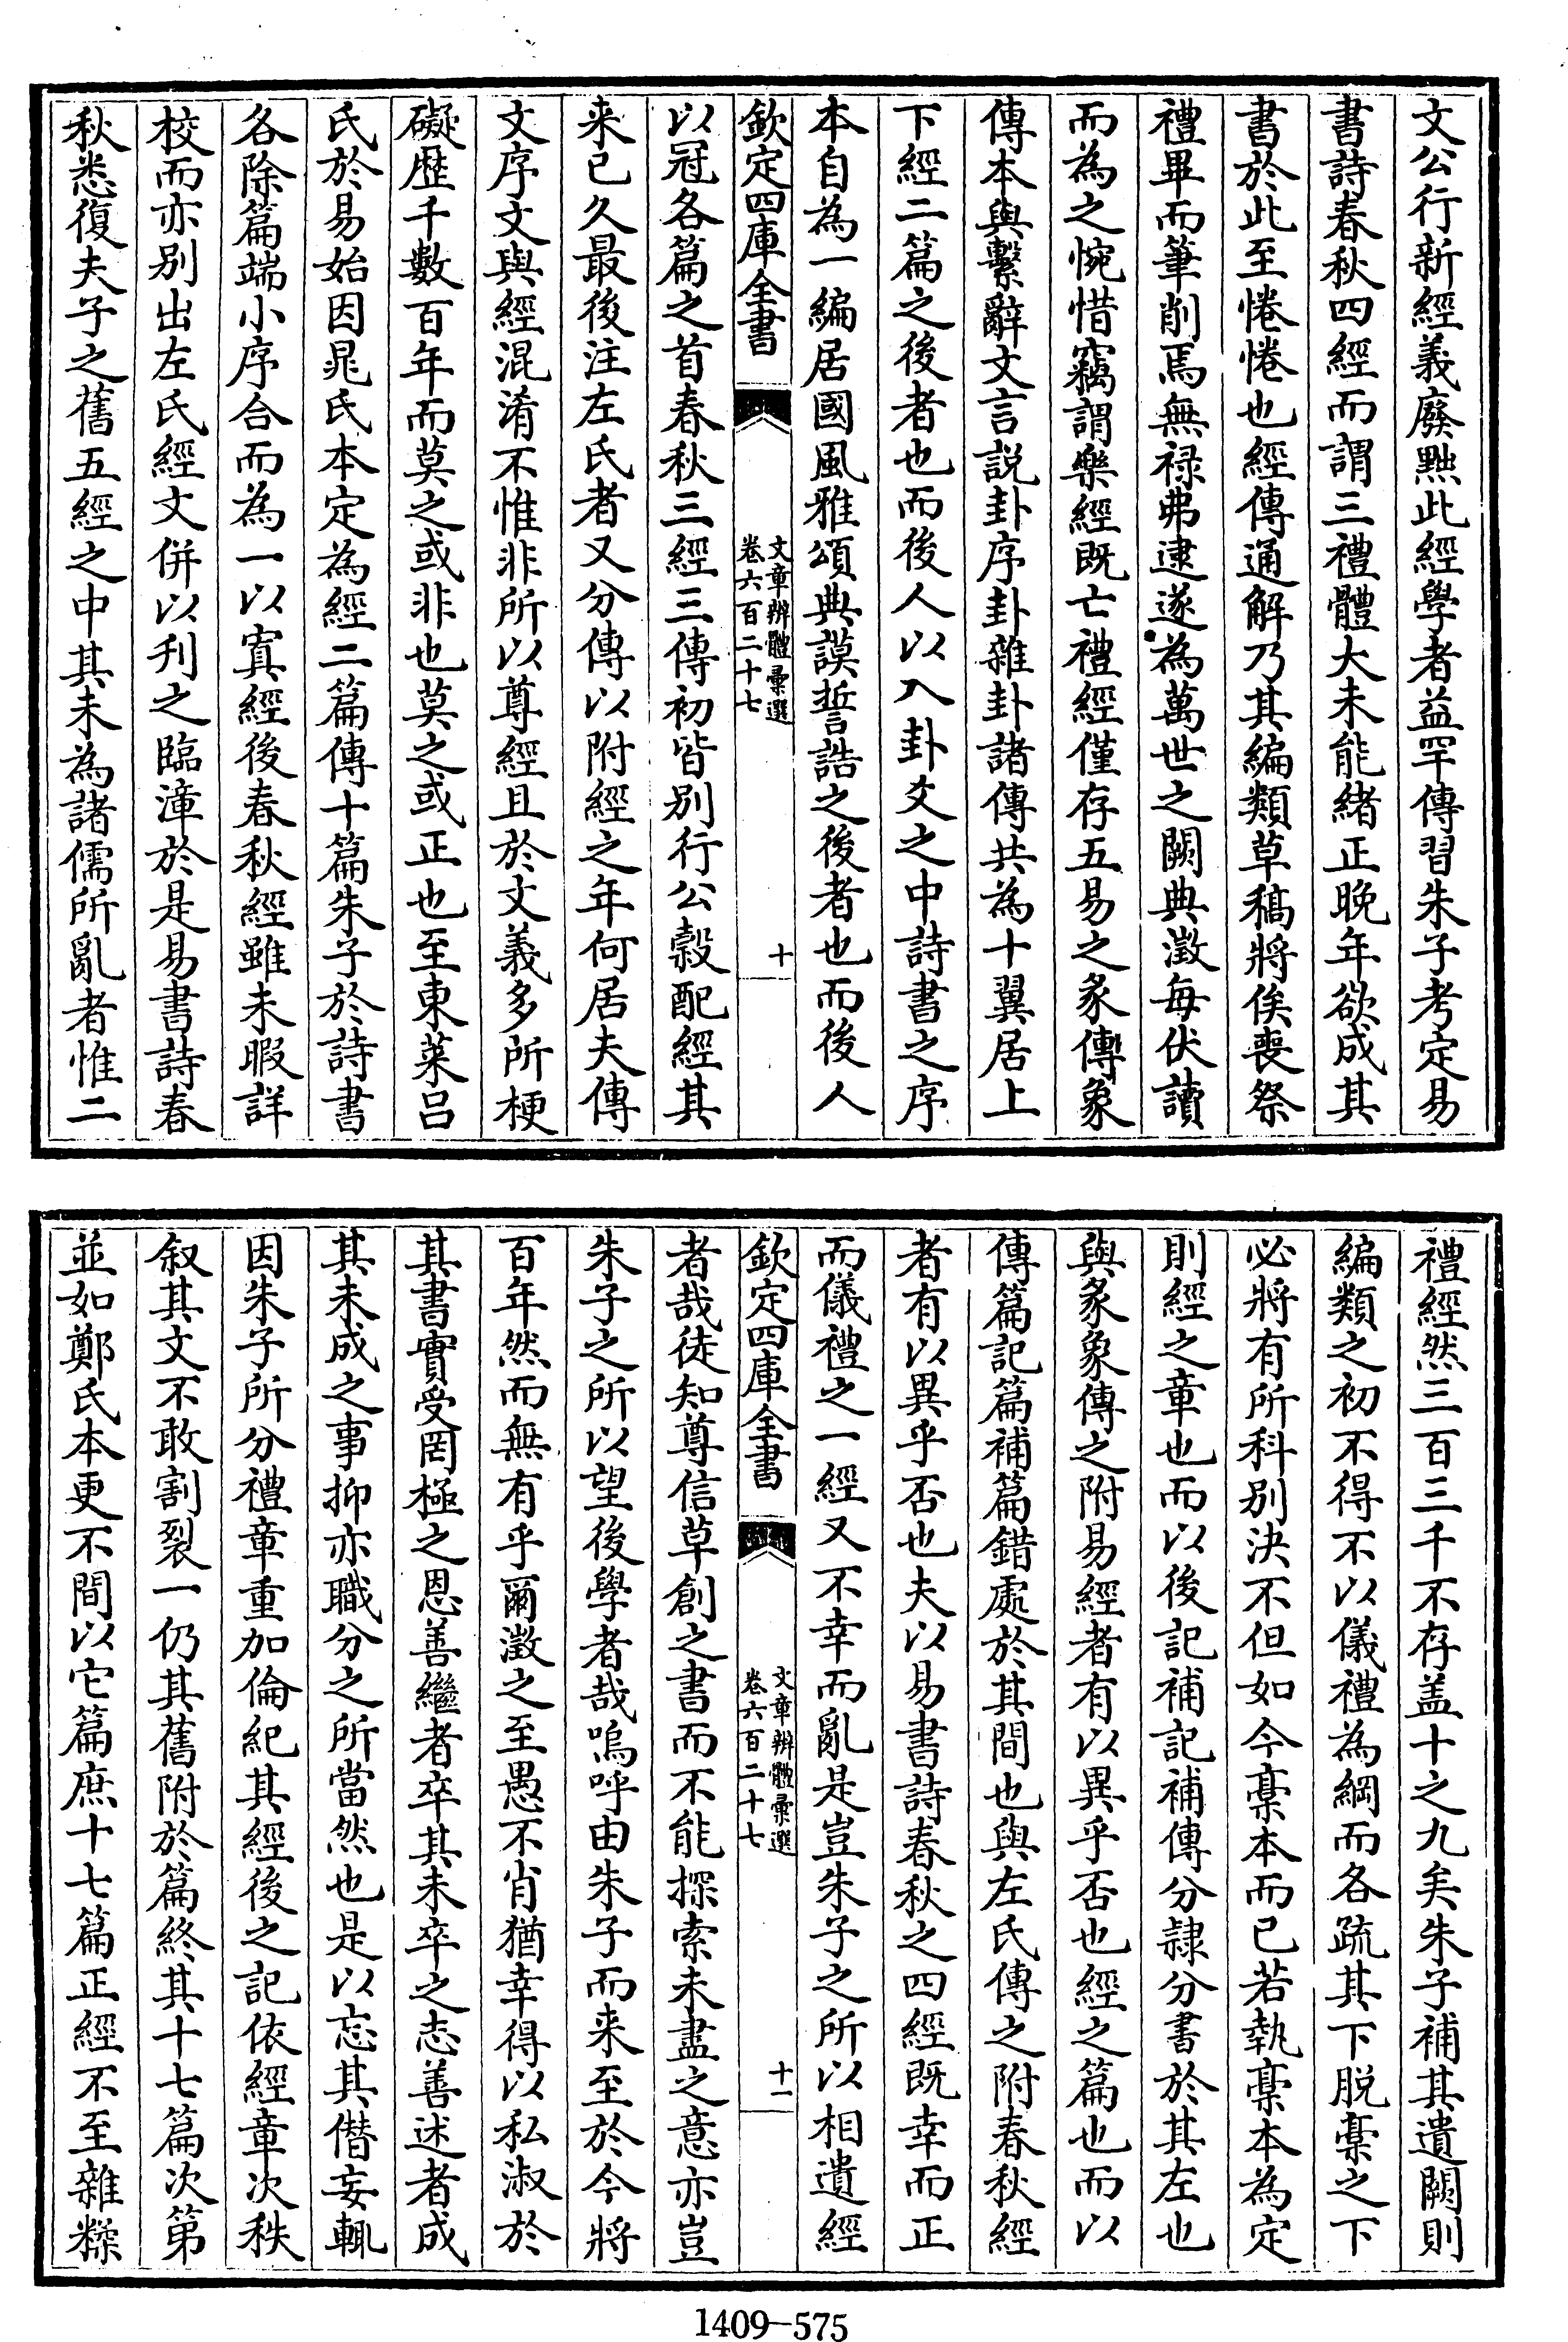 文公行新經義廢黜此經學者益罕傳習朱子考定易
書詩春秋四經而謂三禮體大未能緒正晚年欲成其
書於此至惓惓也經傳通解乃其編類草稿將俟喪祭
禮畢而筆削焉無禄弗逮遂為萬世之闕典澂每伏讀
而為之惋惜竊謂樂經既亡禮經僅存五易之彖傳象
傳本與繫辭文言説卦序卦雜卦諸傳共為十翼居上
下經二篇之後者也而後人以入卦爻之中詩書之序
本自為一編居國風雅頌典謨誓誥之後者也而後人
欽定四庫全書
文章辨體彙選
卷六百二十七
十
以冠各篇之首春秋三經三傳初皆別行公穀配經其
来已久最後注左氏者又分傳以附經之年何居夫傳
文序文與經混淆不惟非所以尊經且於文義多所梗
礙歴千數百年而莫之或非也莫之或正也至東萊吕
氏於易始因晁氏本定為經二篇傳十篇朱子於詩書
各除篇端小序合而為一以寘經後春秋經雖未暇詳
校而亦别出左氏經文併以刋之臨漳於是易書詩春
秋悉復夫子之舊五經之中其未為諸儒所亂者惟二
禮經然三百三千不存盖十之九矣朱子補其遺闕則
編類之初不得不以儀禮為綱而各疏其下脱稾之下
必將有所科别決不但如今稾本而已若執稾本為定
則經之章也而以後記補記補傳分隷分書於其左也
與彖象傳之附易經者有以異乎否也經之篇也而以
傳篇記篇補篇錯處於其間也與左氏傳之附春秋經
者有以異乎否也夫以易書詩春秋之四經既幸而正
而儀禮之一經又不幸而亂是豈朱子之所以相遺經
欽定四庫全書
文章辨體彙選
卷六百二十七
十一
者哉徒知尊信草創之書而不能探索未盡之意亦豈
朱子之所以望後學者哉嗚呼由朱子而来至於今將
百年然而無有乎爾澂之至愚不肖猶幸得以私淑於
其書實受罔極之恩善繼者卒其未卒之志善述者成
其未成之事抑亦職分之所當然也是以忘其僭妄輒
因朱子所分禮章重加倫紀其經後之記依經章次秩
叙其文不敢割裂一仍其舊附於篇終其十七篇次第
並如鄭氏本更不間以它篇庶十七篇正經不至雜糅
1409-575